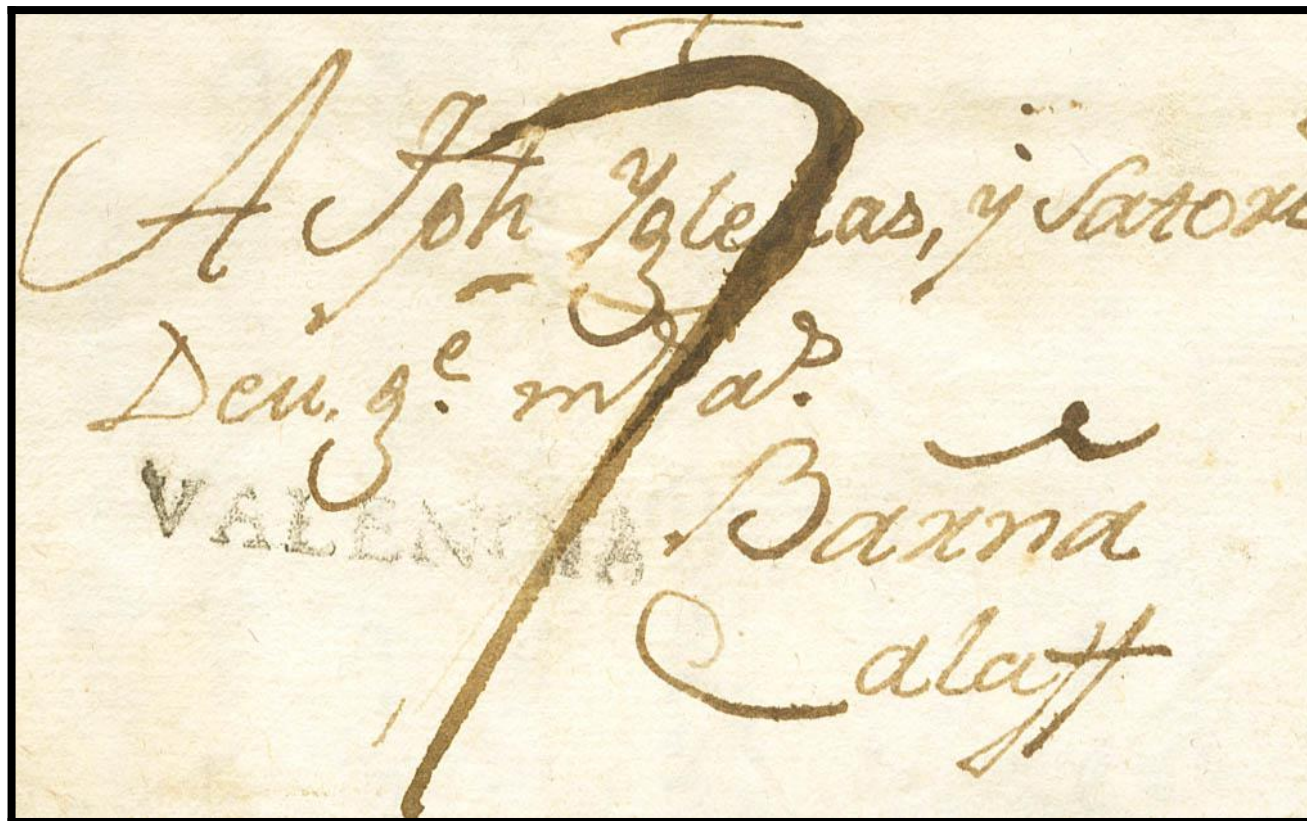 A Jph Yglesias, y Satorr
Deu, g.e m.s a.s
VALENCIA
Barna
Calaff
7